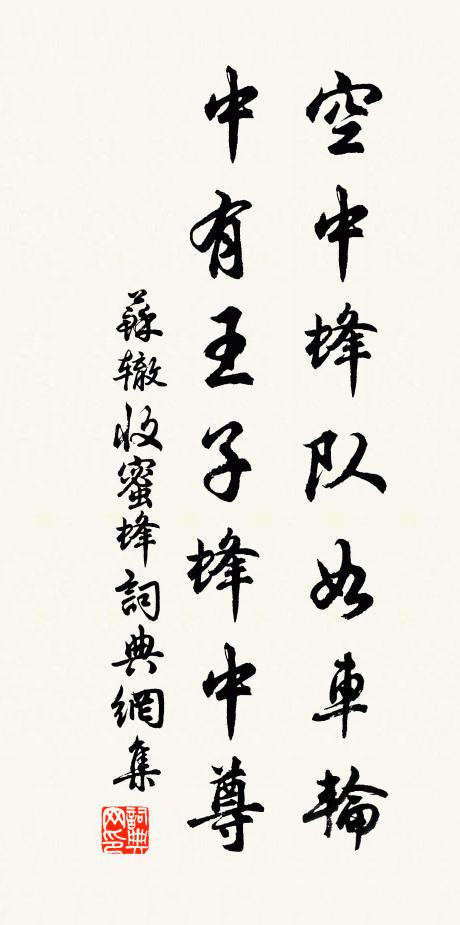 空中蜂队如車輪
中有王子蜂中尊
蘇辙收蜜蜂詞典網集
詞典网印